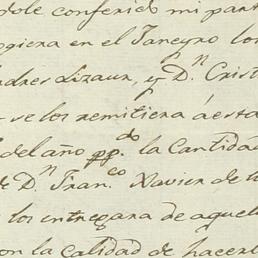 dole conferido mi part
ogiera en el Janeyro los
ndres Lizaur, y Dn. Crist
se los remitiera á esta
del año ppdo. la Cantidad
e Dn. Franco Xavier de
los entregara de aquel
on la calidad de hacer